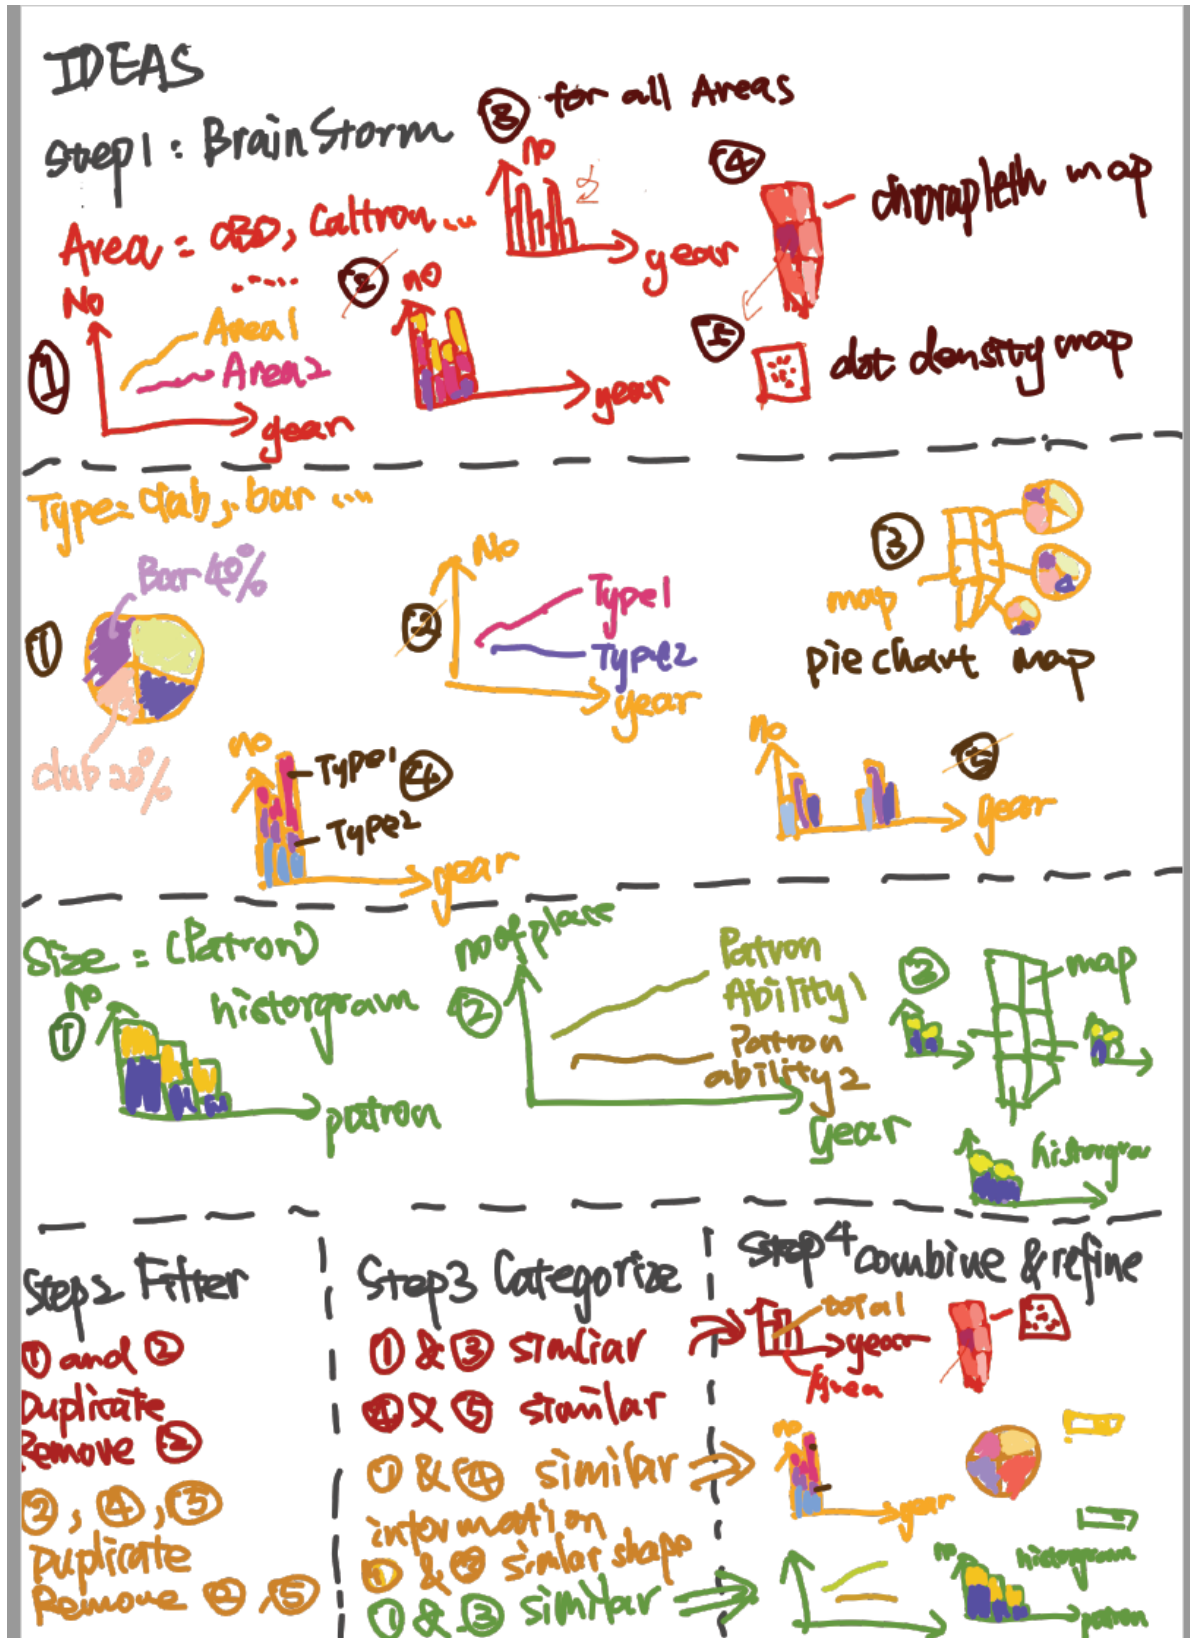 IDEAS
Step1: BrainStorm
③ for all Areas
no
year
④
choropleth map
Area = CBD, Caltron...
......
No
① 
Area1
Area2
year
②
no
year
⑤
dot density map
Type= club, bar ...
Bar 40%
①
club 20%
No
②
Type1
Type2
year
③
map
pie chart map
no
Type1 ④
Type2
year
no
⑤
year
Size = (Patron)
no
①
historgram
patron
no of place
②
Patron
Ability1
Patron
ability2
year
③
map
historgra
Step2 Filter
① and ②
Duplicate
Remove ②
②, ④, ⑤
Duplicate
Remove ② ⑤
Step3 Categorize
① & ③ simliar
④ & ⑤ similar
① & ④ similar
information
① & ③ similar shape
① & ③ similar
Step4 combine & refine
total
year
no
year
no
historgram
patron